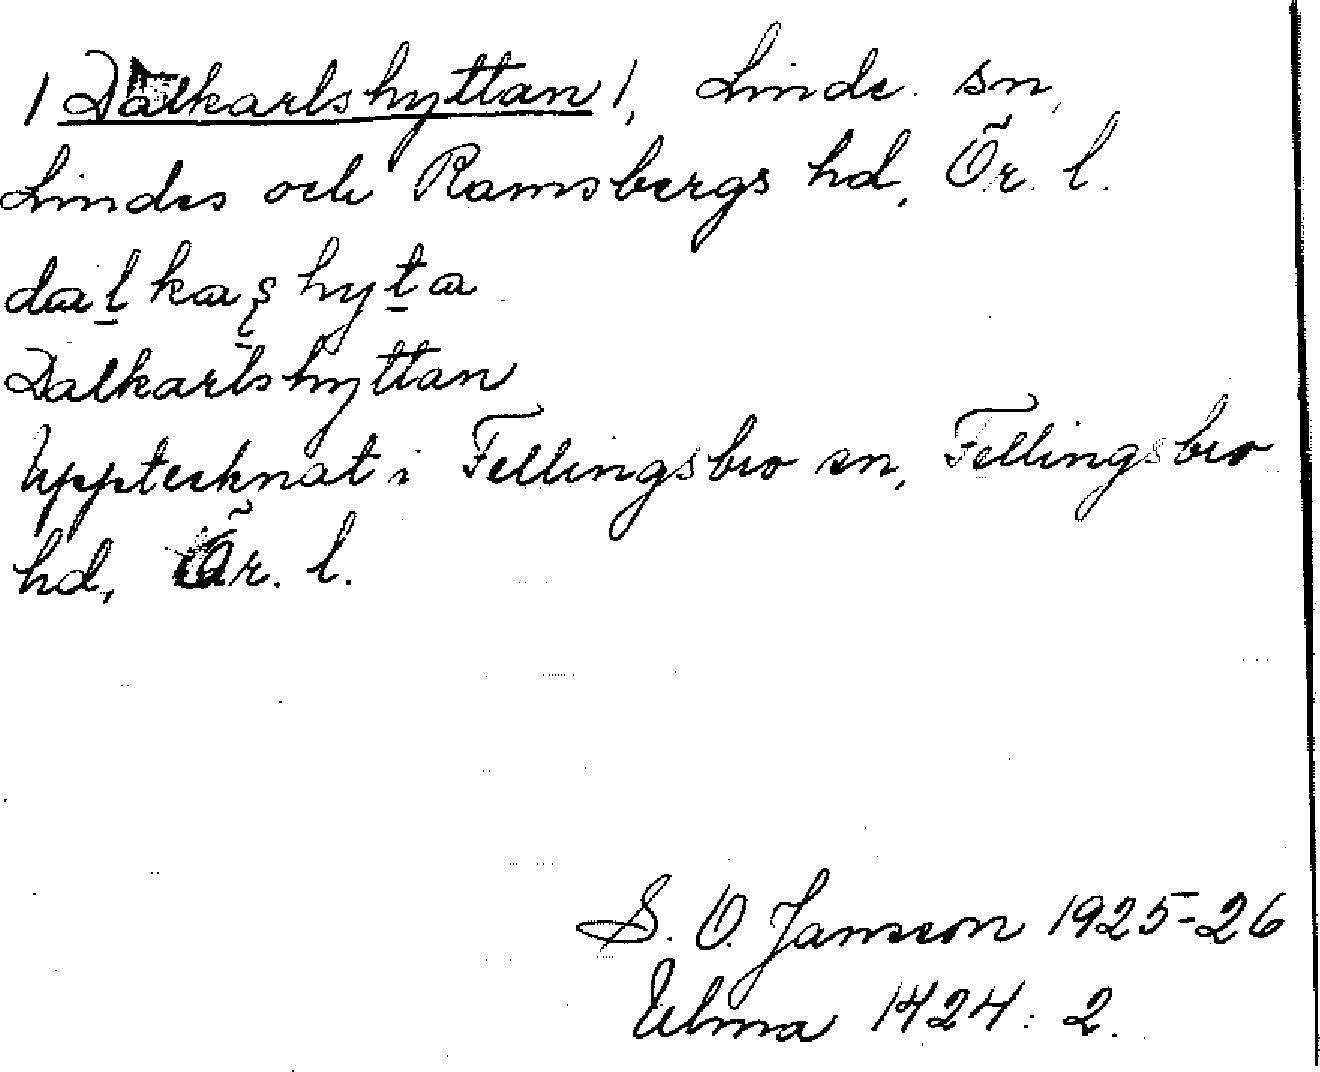 /Dalkarlshyttan/, Linde sn,
Lindes och Ramsbergs hd, Ör. l.
dal̲ kaʂ hyt̲a
Dalkarlshyttan
Upptecknat i Fellingsbro sn, Fellingsbro
hd, Ör. l.
S. O. Jansson 1925-26
Ulma 1424: 2.